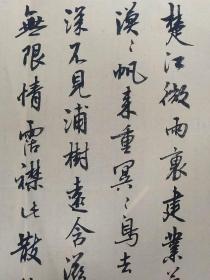 楚江微雨裏建業
漠〻帆來重冥〻鳥去
深不見浦樹遠含滋
無限情霑襟比散